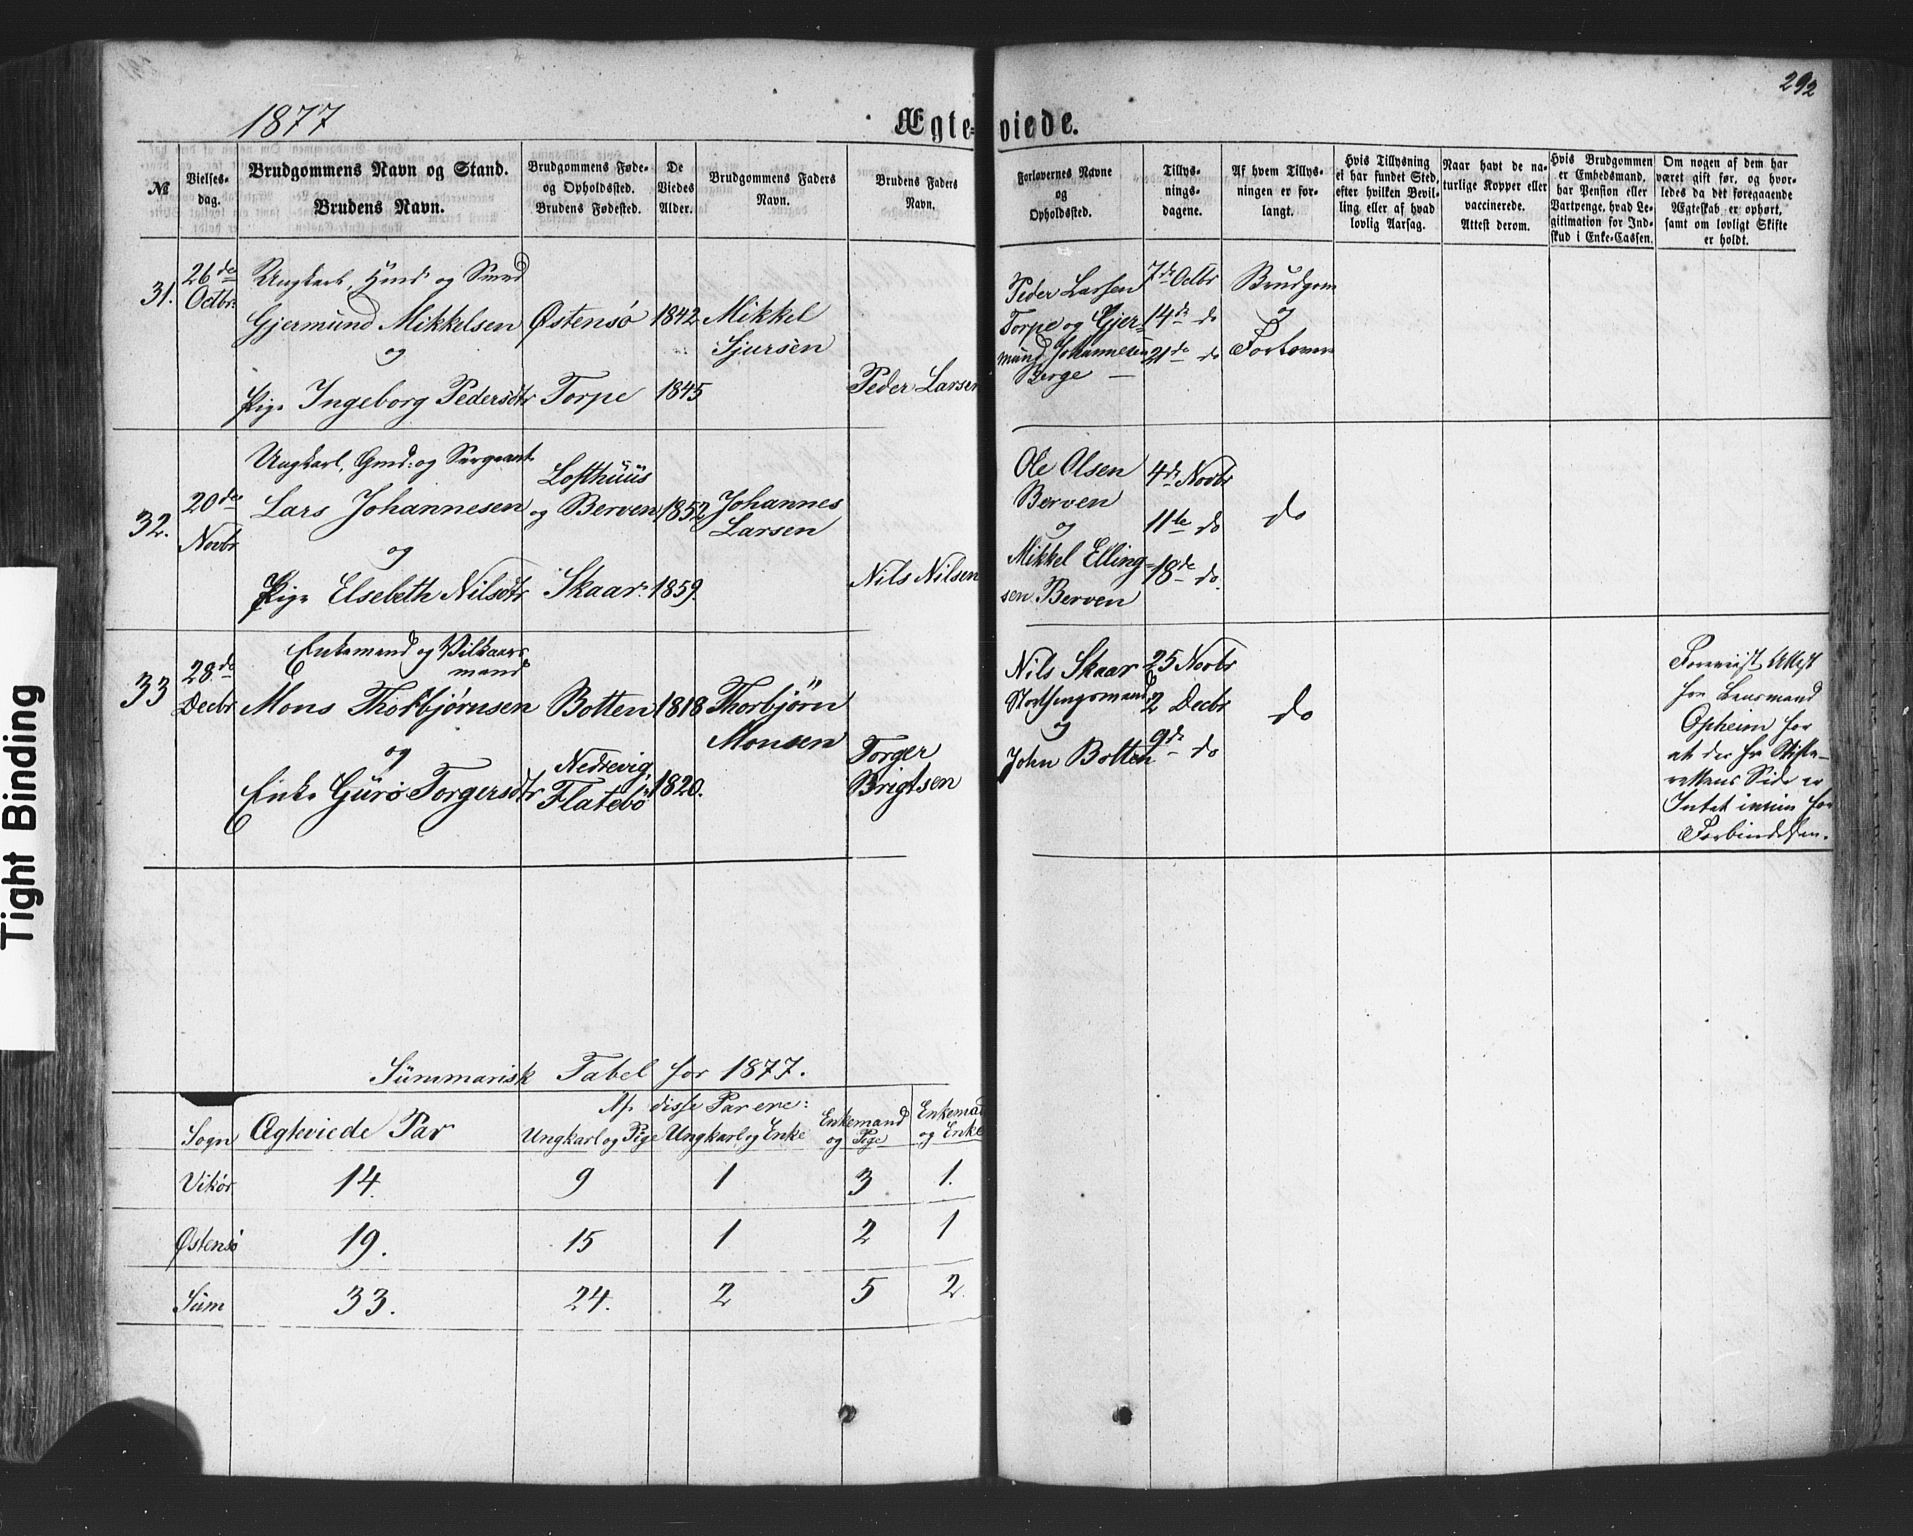 292
1877
Ægte- viede.
№
Vielses-
dag.
Brudgommens Navn og Stand.
Brudens Navn.
Brudgommens Føde-
og Opholdssted.
Brudens Fødested.
De
Viedes
Alder.
Brudgommens Faders
Navn.
Brudens Faders
Navn.
Forlovernes Navne
og
Opholdssted.
Tillys-
nings-
dagene.
Af hvem Tillys-
ningen er for-
langt.
Hvis Tillysning
ei har fundet Sted,
efter hvilken Bevil-
ling eller af hvad
lovlig Aarsag.
Naar havt de na-
turlige Kopper eller
vaccinerede.
Attest derom.
Hvis Brudgommen
er Embedsmand,
har Pension eller
Vartpenge, hvad Le-
gitimation for Ind-
skud i Enke-Cassen.
Om nogen af dem har
været gift før, og hvor-
ledes da det foregaaende
Ægteskab er ophørt,
samt om lovligt Skifte
er holdt.
31.
26de
Octbr.
Ungkarl, og
Gjermund Mikkelsen
og
Pige Ingeborg Pedersdtr
Østensø
Torpe
1842
1845
Mikkel
Sjursen
Peder Larsen
Peder Larsen
Torpe og Gjer-
mund Johannesen
Berge
7de Octbr
14de do
21de do
Brudgom
og
Forlovere
32.
20de
Novbr
Ungkarl, Gmd: og Sergeant
Lars Johannesen
og
Pige Elsebeth Nilsdtr
Lofthuus
og Berven
Skaar.
1852
1859.
Johannes
Larsen
Nils Nilsen
Ole Olsen
Berven
og
Mikkel Elling-
sen Berven
4de Novbr
11te do
18de do.
do
33
28de
Decbr
Enkemand og Vilkaars
mand
Mons Thorbjørnsen
og
Enke Guro Torgersdtr
Botten
Nedrevig,
Flatebø
1818
1820.
Thorbjørn
Monsen
Torger
Brigtsen
Nils Skaar
Storthingsmand
og
John Botten
25 Novbr
2 Decbr
9de do
do
Foreviist Attest
fra Lensmand
Opheim for
at der fra Skifte-
rettens Side er
Intet iveien for
Forbindelsen.
Summarisk Tabel for 1877.
Sogn
Ægteviede Par
Af disse Par ere:
Ungkarl og Pige
Ungkarl og Enke
Enkemand
og Pige
Enkemand
og Enke
Vikør
14.
9
1
3
1.
Østensø
19.
15
1
2
1
Sum
33.
24.
2
5
2.
Tight Binding